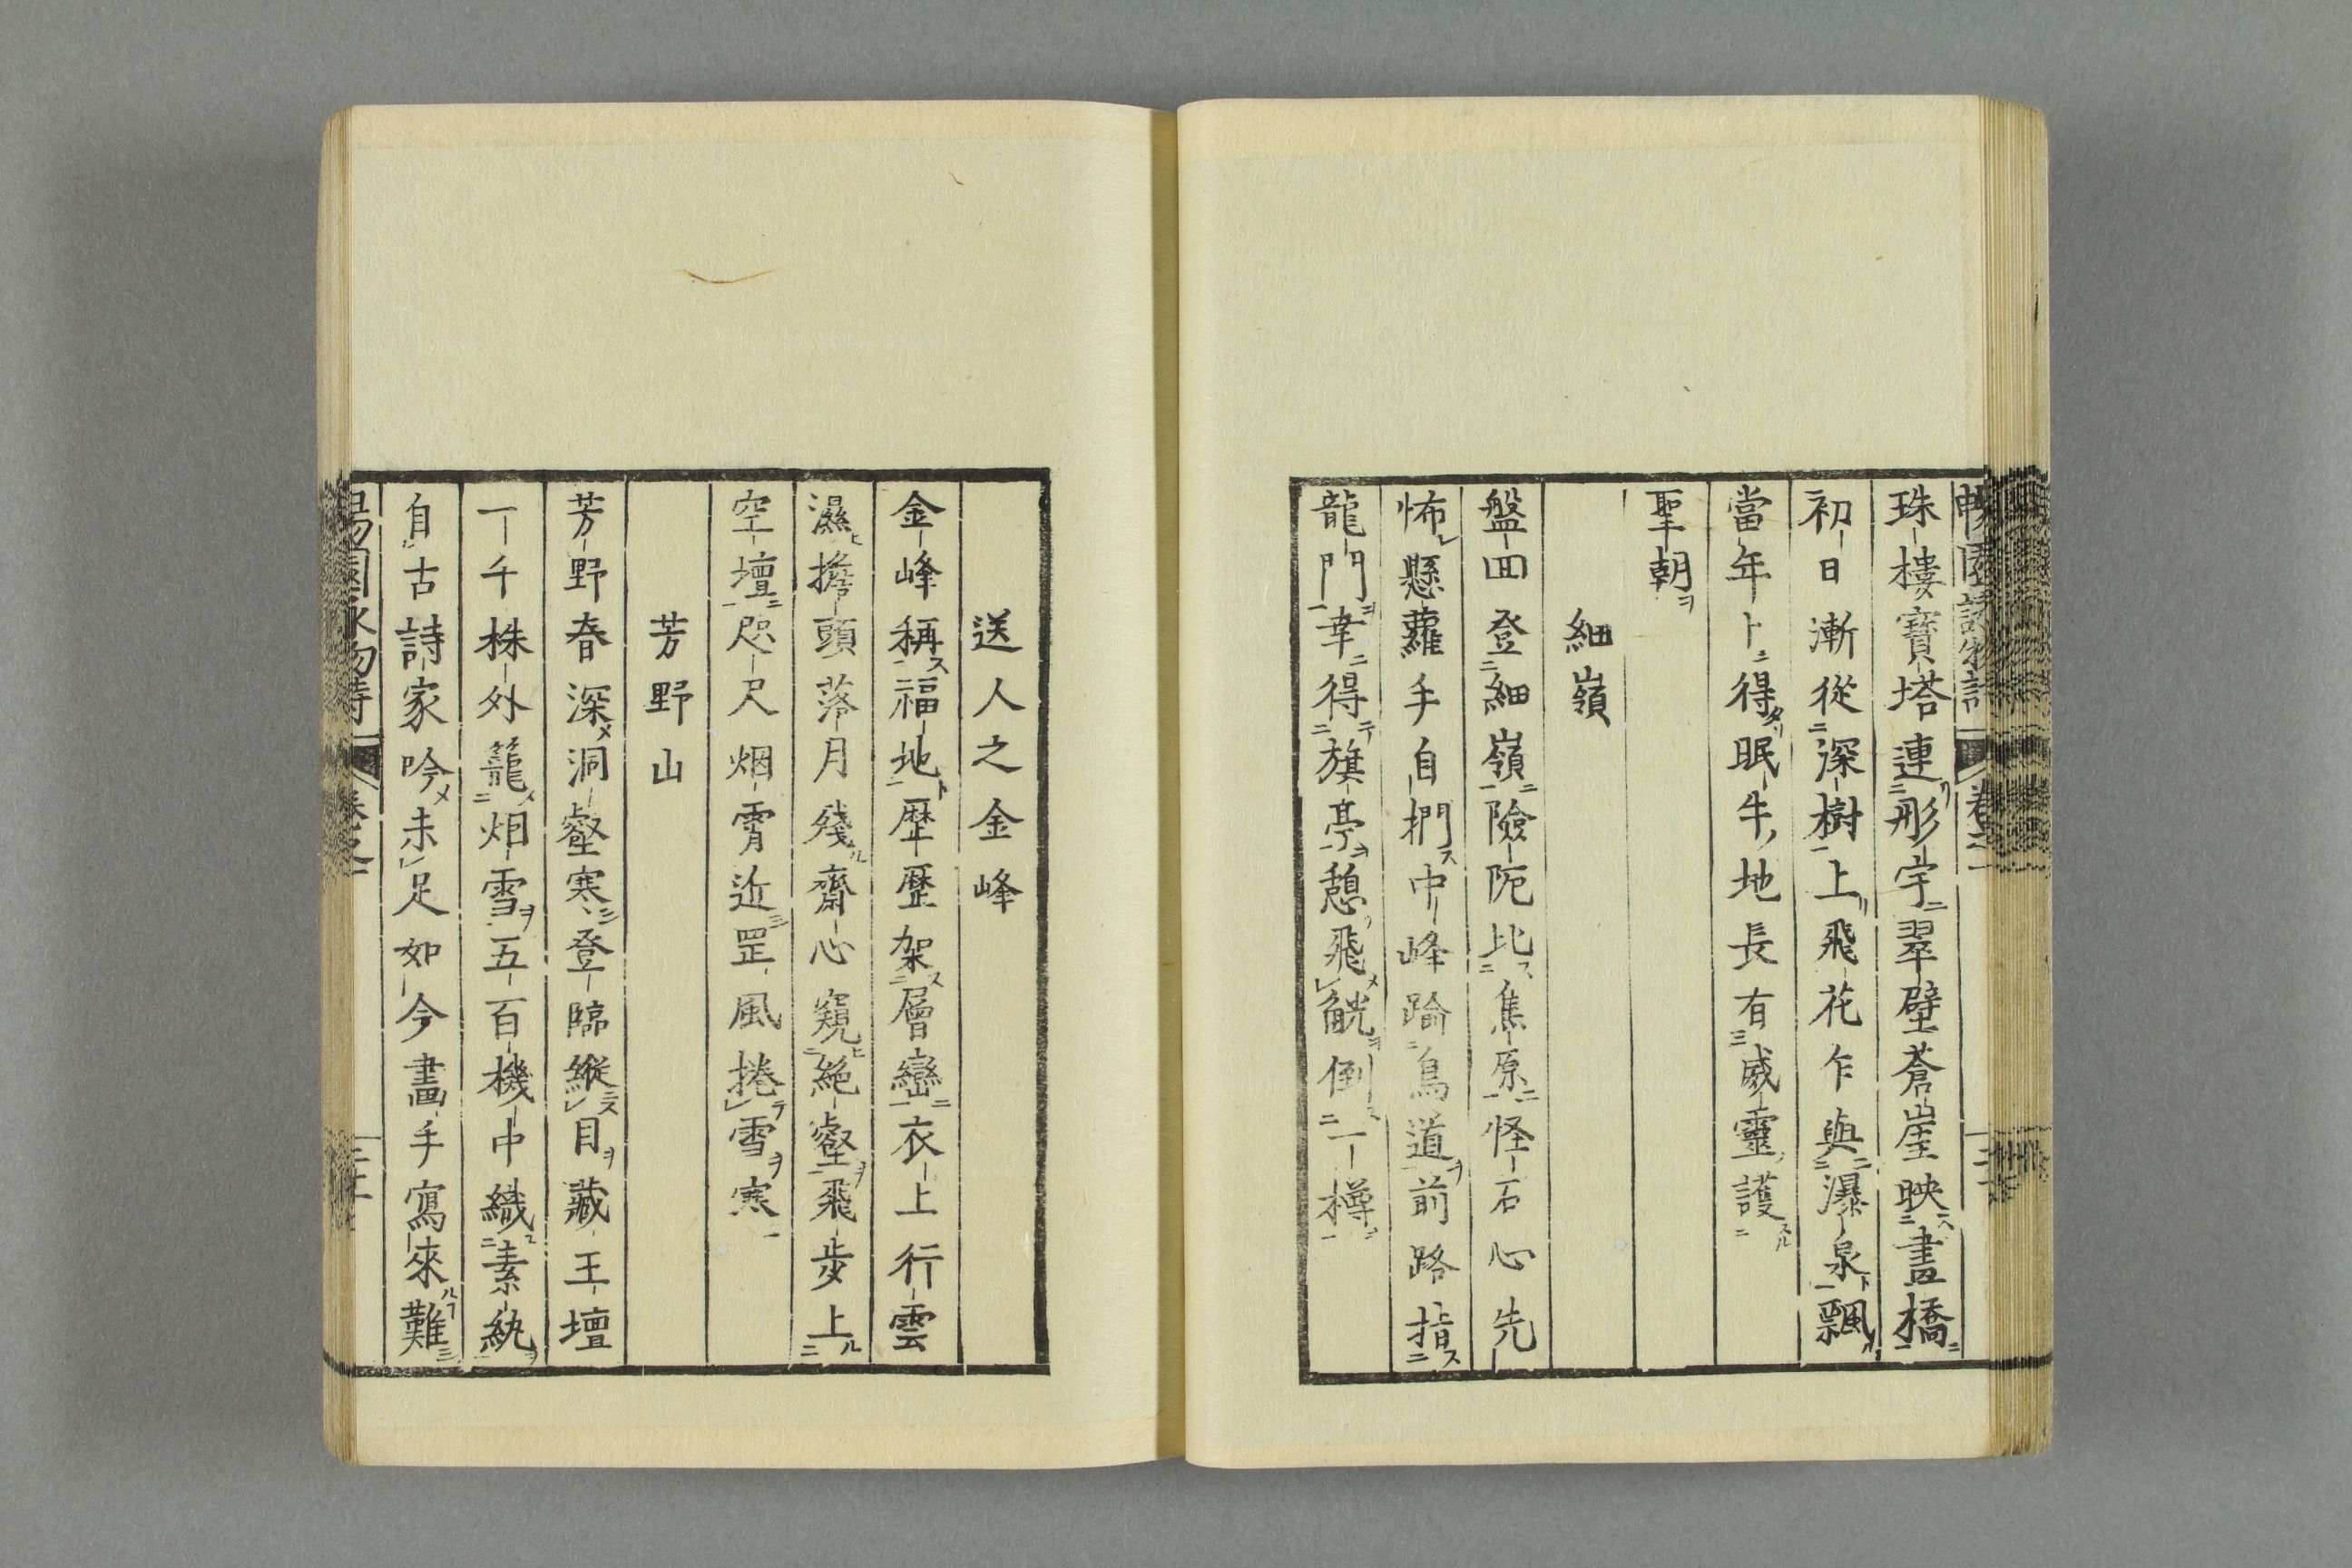 珠樓寶塔連形宇翠壁蒼崖映畫橋
初日漸從深樹上飛花乍與瀑泉飄
當年卜得眠牛地長有威靈護
聖朝
細嶺
盤回登細嶺險阨比焦原怪石心先
怖懸蘿手自捫中峰踰鳥道前路指
龍門幸得旗亭憩飛觥倒一樽
送人之金峰
金峰稱福地歷歷架層巒衣上行雲
濕擔頭落月殘齋心窺絕壑飛步上
空壇咫尺烟霄近罡風捲雪寒
芳野山
芳野春深洞壑寒登臨縱目藏王壇
一千株外籠烟雪五百機中織素紈
自古詩家吟未足如今畫手寫來難